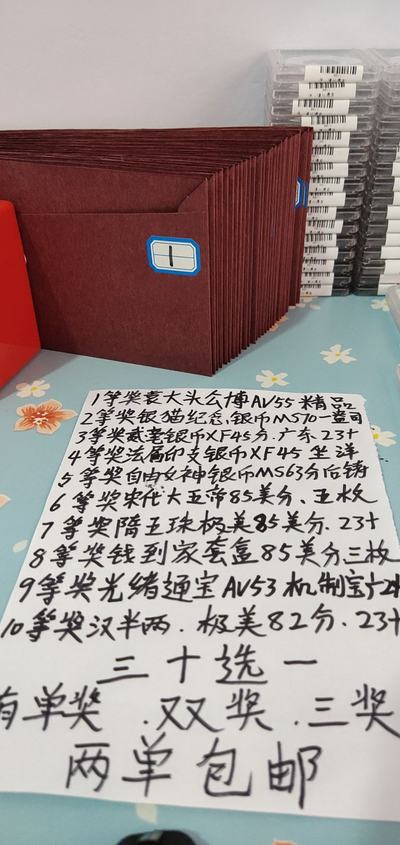 1
1等奖袁大头公博AU55精品
2等奖银猫纪念银币MS70一盎司
3等奖贰毫银币XF45分.广东.23+
4等奖法属印支银币XF45坐洋
5等奖自由女神银币MS63分后铸
6等奖宋代大五帝85美分、五枚
7等奖隋五珠极美85美分.23+
8等奖钱到家套盒85美分三枚
9等奖光绪通宝AU53机制宝广
10等奖汉半两.极美82分.23+
三十选一
有单奖.双奖.三奖
两单包邮